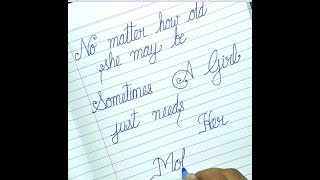 No matter how old
she may be
Sometimes A Girl
just needs
Her
Mot